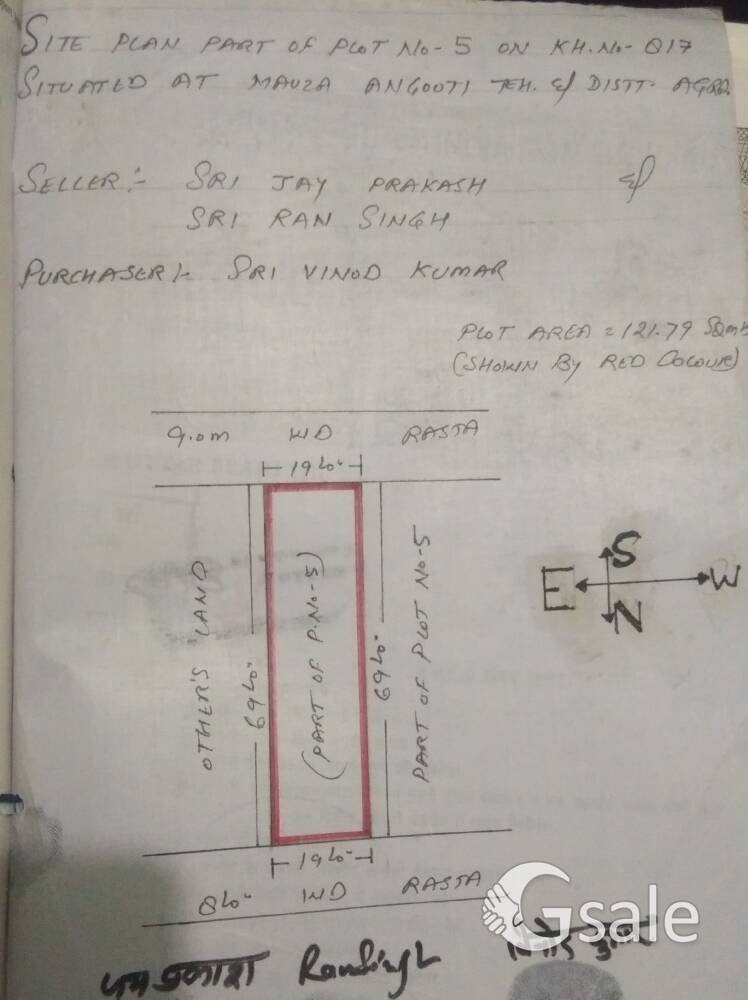 SITE PLAN PART OF PLOT No- 5 ON KH.No- 817
SITUATED AT MAUZA ANGOOTI TEH. & DISTT- AGRA
SELLER:- SRI JAY PRAKASH &
SRI RAN SINGH
PURCHASER:- SRI VINOD KUMAR
PLOT AREA = 121.79 SQmt
(SHOWN BY RED COLOUR)
9.0m WD RASTA
19'-0"
OTHER'S LAND
69'-0"
(PART OF P.No-5)
69'-0"
PART OF PLOT No-5
S
E W
N
19'-0"
8'-0" WD RASTA
Gsale
जय प्रकाश RanSingh विनोद कुमार